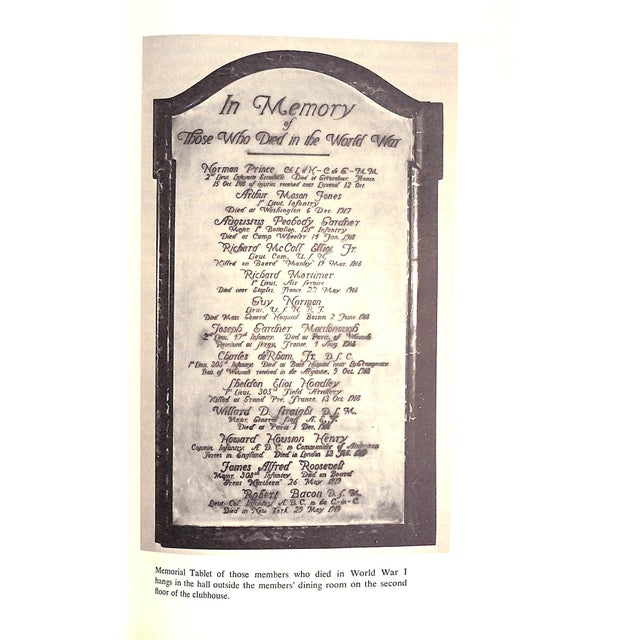 In Memory
of
Those Who Died in the World War
Norman Prince Ch. L. d'H - C. de G - M. M.
2nd Lieut. Lafayette Escadrille Died at Gerardmer, France
15 Oct. 1916 of injuries received near Luxeuil 12 Oct.
Arthur Mason Jones
1st Lieut. Infantry
Died at Washington 6 Dec. 1917
Augustus Peabody Gardner
Major. 1st Battalion, 121st Infantry
Died at Camp Wheeler 14 Jan. 1918
Richard McCall Elliot, Jr.
Lieut. Com. U. S. N.
Killed on Board "Manley" 19 Mar. 1918
Richard Mortimer
1st Lieut. Air Service
Died near Etaples, France, 22 May 1918
Guy Norman
Lieut. U. S. N. R. F.
Died Mass General Hospital Boston 2 June 1918
Joseph Gardner Macdonough
2nd Lieut. 47th Infantry. Died at Paris of Wounds
Received at Sergy, France, 1 Aug. 1918
Charles deRham, Jr. D. S. C.
1st Lieut. 305th Infantry. Died at Base Hospital near
of Wounds received in the Argonne, 9 Oct. 1918
Sheldon Eliot Hoadley
1st Lieut. 305th Field Artillery
Killed at Grand Pre, France, 13 Oct. 1918
Willard D. Straight D. S. M.
Major. General Staff A. E. F.
Died at Paris 1 Dec. 1918
Howard Houston Henry
Captain, Infantry, A. D. C. to Commander of American
Forces in England Died in London 12 Feb. 1919
James Alfred Roosevelt
Major. 308th Infantry Died on Board
Great Northern 26 May 1919
Robert Bacon D. S. M.
Lieut. Col. Infantry A. D. C. to the C.-in-C.
Died in New York 29 May 1919
Memorial Tablet of those members who died in World War I
hangs in the hall outside the members' dining room on the second
floor of the clubhouse.